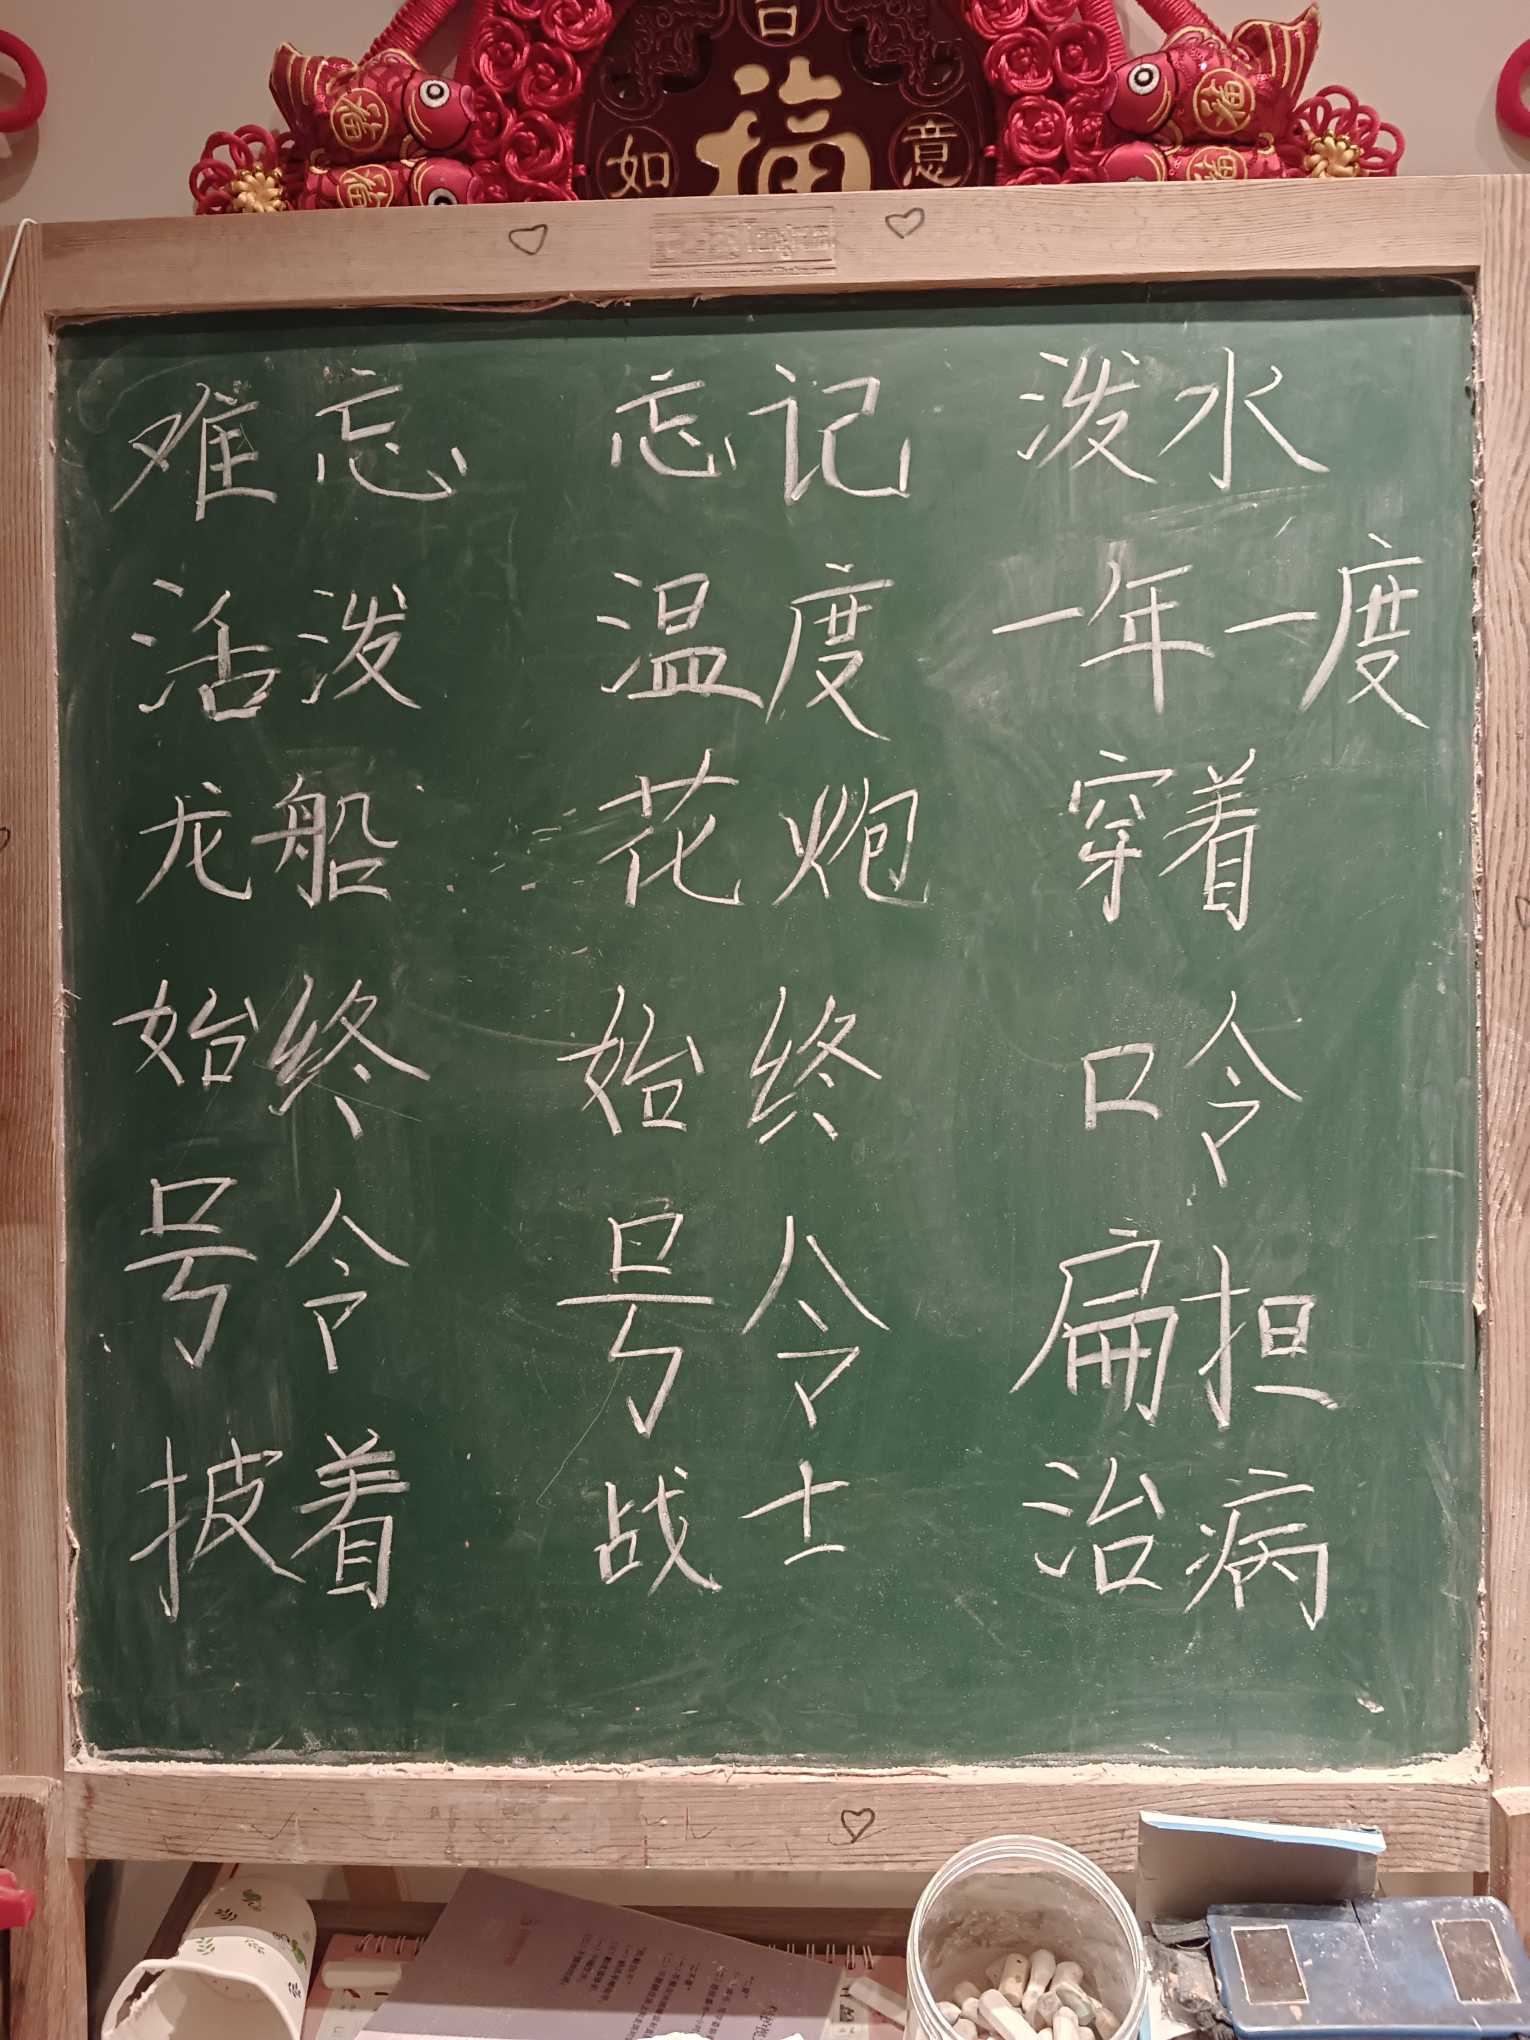 吉
如 福 意
福 福
福 福
Tangram
难忘 忘记 泼水
活泼 温度 一年一度
龙船 花炮 穿着
始终 始终 口令
号令 号令 扁担
披着 战士 治病